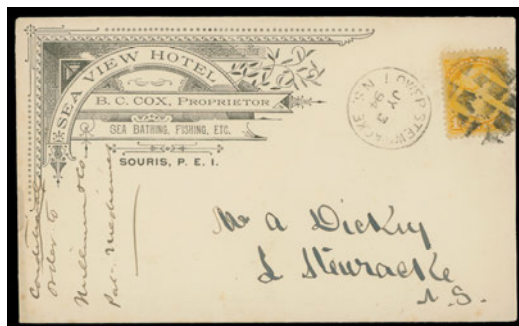 SEA VIEW HOTEL
B. C. COX, PROPRIETOR
SEA BATHING, FISHING, ETC.
SOURIS, P. E. I.
LOWER STEWIACKE N.S.
JY 3
94
Mr A Dickey
L Stewiacke
N.S.
order to
Pat. Medicines